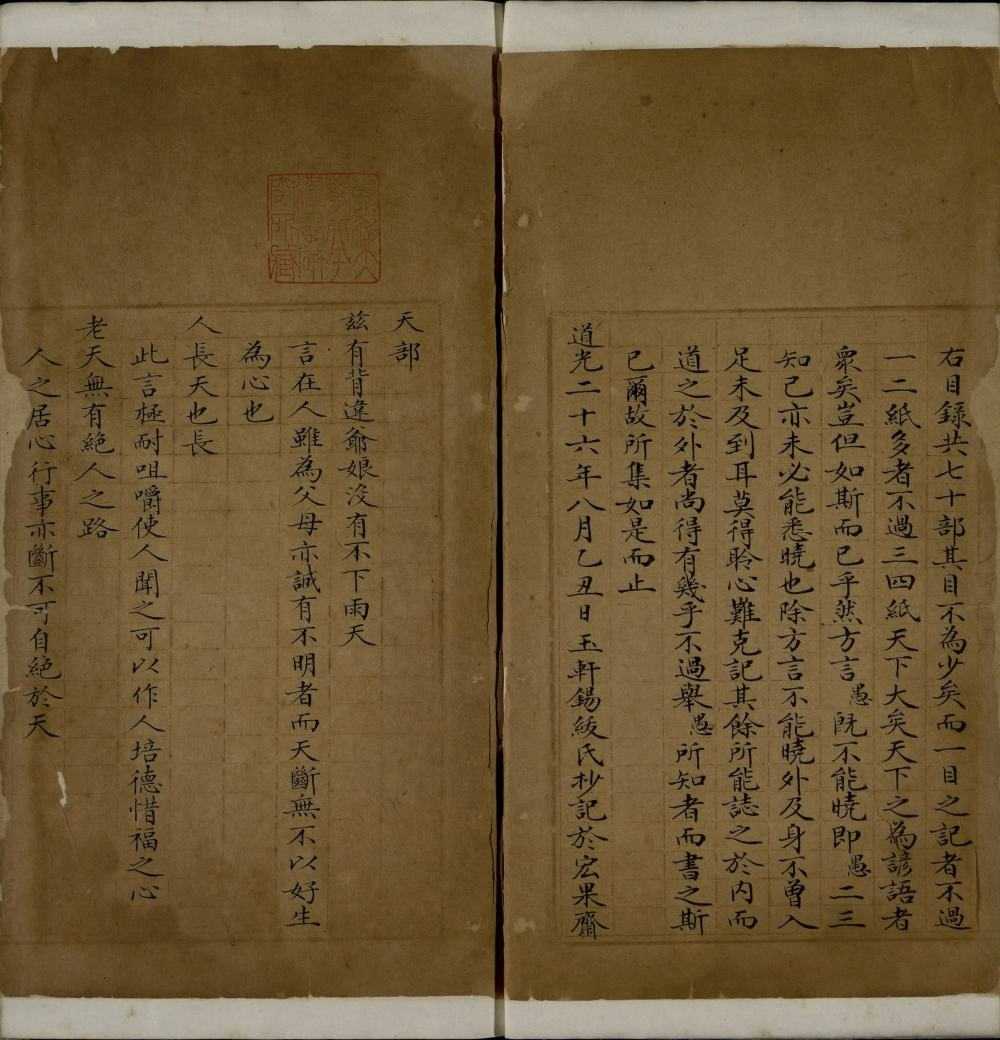 右目錄共七十部其目不為少矣而一目之記者不過
一二紙多者不過三四紙天下大矣天下之為諺語者
眾矣豈但如斯而已乎然方言愚既不能曉即愚二三
知已亦未必能悉曉也除方言不能曉外及身不曾入
足未及到耳莫得聆心難克記其餘所能誌之於內而
道之於外者尚得有幾乎不過舉愚所知者而書之斯
已爾故所集如是而止
道光二十六年八月乙丑日玉軒錫綬氏抄記於宏果齋
天部
玆有背違爺娘沒有不下雨天
言在人雖為父母亦誠有不明者而天斷無不以好生
為心也
人長天也長
此言極耐咀嚼使人聞之可以作人培德惜福之心
老天無有絕人之路
人之居心行事亦斷不可自絕於天